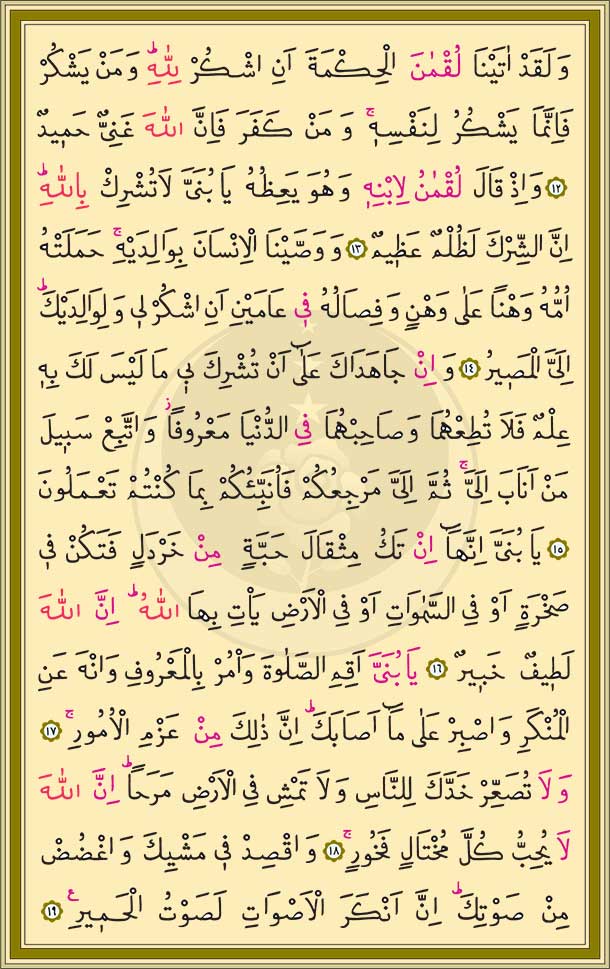 وَلَقَدْ اٰتَيْنَا لُقْمٰنَ الْحِكْمَةَ اَنِ اشْكُرْ لِلّٰهِۜ وَمَنْ يَشْكُرْ
فَاِنَّمَا يَشْكُرُ لِنَفْسِه۪ۚ وَمَنْ كَفَرَ فَاِنَّ اللّٰهَ غَنِيٌّ حَم۪يدٌ
﴿١٢﴾ وَاِذْ قَالَ لُقْمٰنُ لِابْنِه۪ وَهُوَ يَعِظُهُ يَا بُنَيَّ لَا تُشْرِكْ بِاللّٰهِۜ
اِنَّ الشِّرْكَ لَظُلْمٌ عَظ۪يمٌ ﴿١٣﴾ وَوَصَّيْنَا الْاِنْسَانَ بِوَالِدَيْهِۚ حَمَلَتْهُ
اُمُّهُ وَهْنًا عَلٰى وَهْنٍ وَفِصَالُهُ ف۪ي عَامَيْنِ اَنِ اشْكُرْ ل۪ي وَلِوَالِدَيْكَۜ
اِلَيَّ الْمَص۪يرُ ﴿١٤﴾ وَاِنْ جَاهَدَاكَ عَلٰٓى اَنْ تُشْرِكَ ب۪ي مَا لَيْسَ لَكَ بِه۪
عِلْمٌ فَلَا تُطِعْهُمَا وَصَاحِبْهُمَا فِي الدُّنْيَا مَعْرُوفًاۘ وَاتَّبِعْ سَب۪يلَ
مَنْ اَنَابَ اِلَيَّۚ ثُمَّ اِلَيَّ مَرْجِعُكُمْ فَاُنَبِّئُكُمْ بِمَا كُنْتُمْ تَعْمَلُونَ
﴿١٥﴾ يَا بُنَيَّ اِنَّهَٓا اِنْ تَكُ مِثْقَالَ حَبَّةٍ مِنْ خَرْدَلٍ فَتَكُنْ ف۪ي
صَخْرَةٍ اَوْ فِي السَّمٰوَاتِ اَوْ فِي الْاَرْضِ يَاْتِ بِهَا اللّٰهُۜ اِنَّ اللّٰهَ
لَط۪يفٌ خَب۪يرٌ ﴿١٦﴾ يَا بُنَيَّ اَقِمِ الصَّلٰوةَ وَاْمُرْ بِالْمَعْرُوفِ وَانْهَ عَنِ
الْمُنْكَرِ وَاصْبِرْ عَلٰى مَٓا اَصَابَكَۜ اِنَّ ذٰلِكَ مِنْ عَزْمِ الْاُمُورِۚ ﴿١٧﴾
وَلَا تُصَعِّرْ خَدَّكَ لِلنَّاسِ وَلَا تَمْشِ فِي الْاَرْضِ مَرَحًاۜ اِنَّ اللّٰهَ
لَا يُحِبُّ كُلَّ مُخْتَالٍ فَخُورٍۚ ﴿١٨﴾ وَاقْصِدْ ف۪ي مَشْيِكَ وَاغْضُضْ
مِنْ صَوْتِكَۜ اِنَّ اَنْكَرَ الْاَصْوَاتِ لَصَوْتُ الْحَم۪يرِ۟ ع ﴿١٩﴾